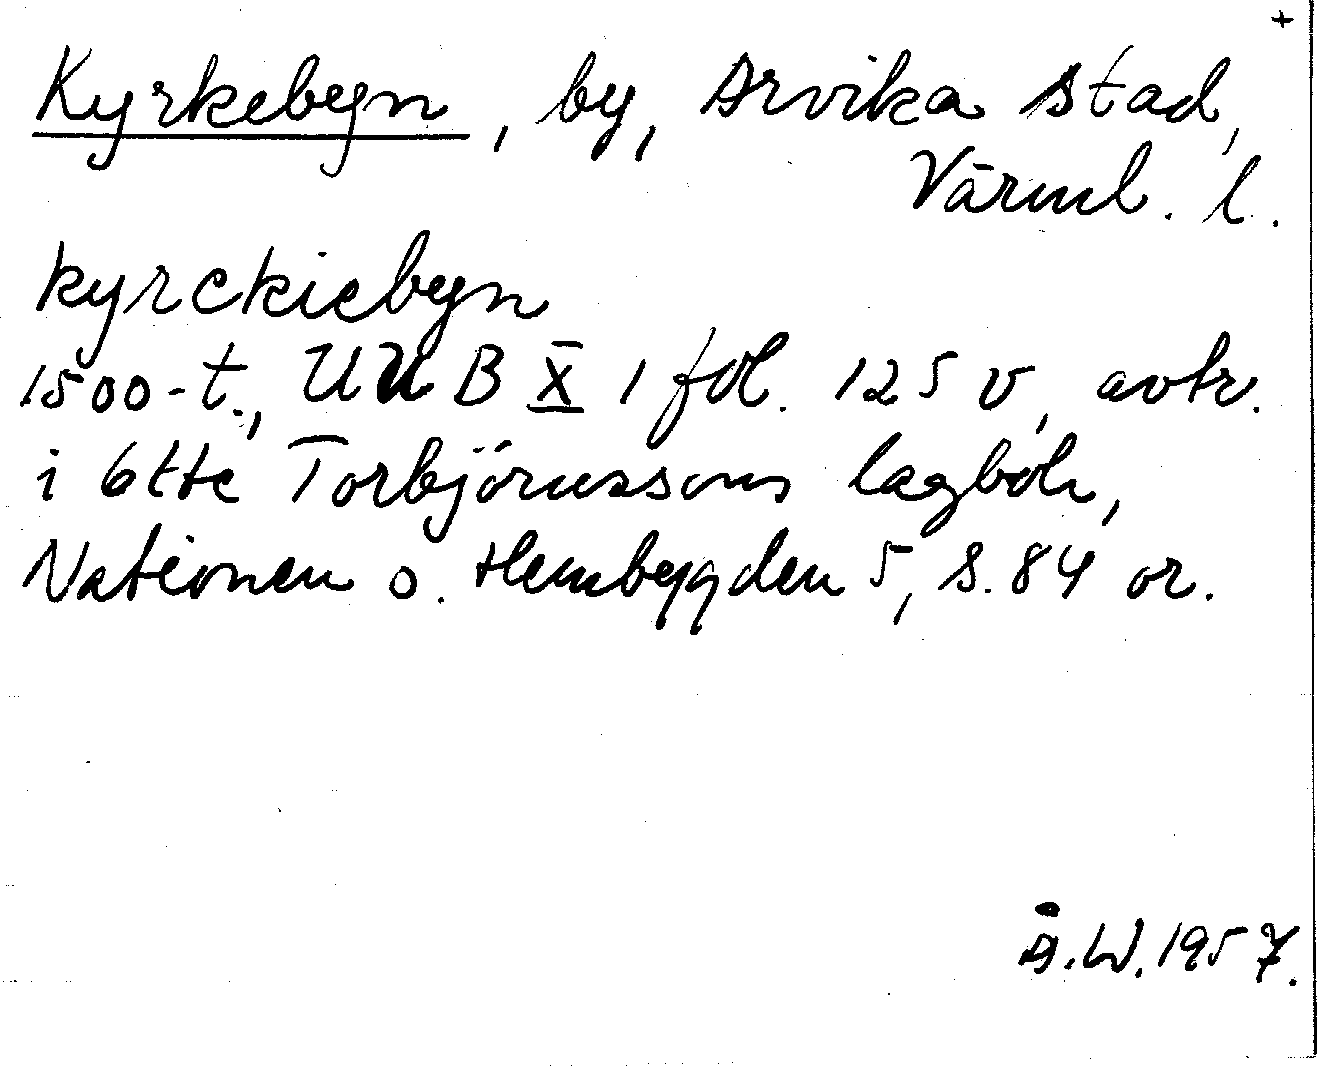 +
Kyrkebyn, by, Arvika stad,
Värml. l.
kyrckiebyn
1500-t., UUB X 1 fol. 125 v, avtr.
i Otte Torbjörnssons lagbok,
Nationen o. Hembygden 5, s. 84 or.
Å.W. 1957.